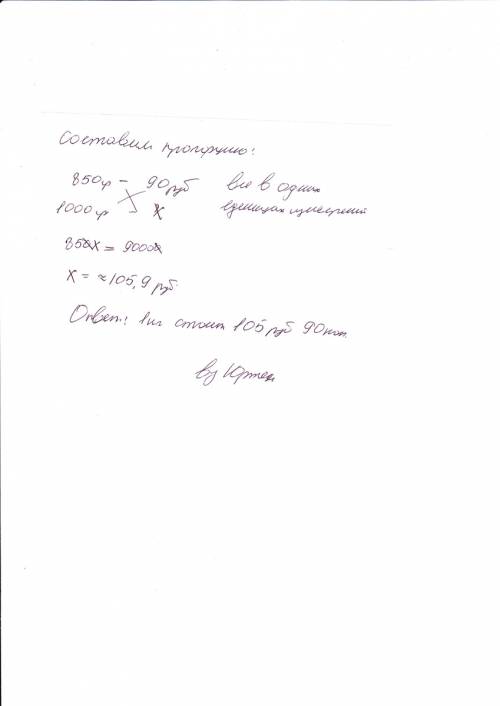 Составим пропорцию:
850гр – 90 руб все в одних
1000гр X единицах измерений
850X = 90000
X = ≈105,9 руб.
Ответ: 1кг стоит 105 руб 90 коп.
by